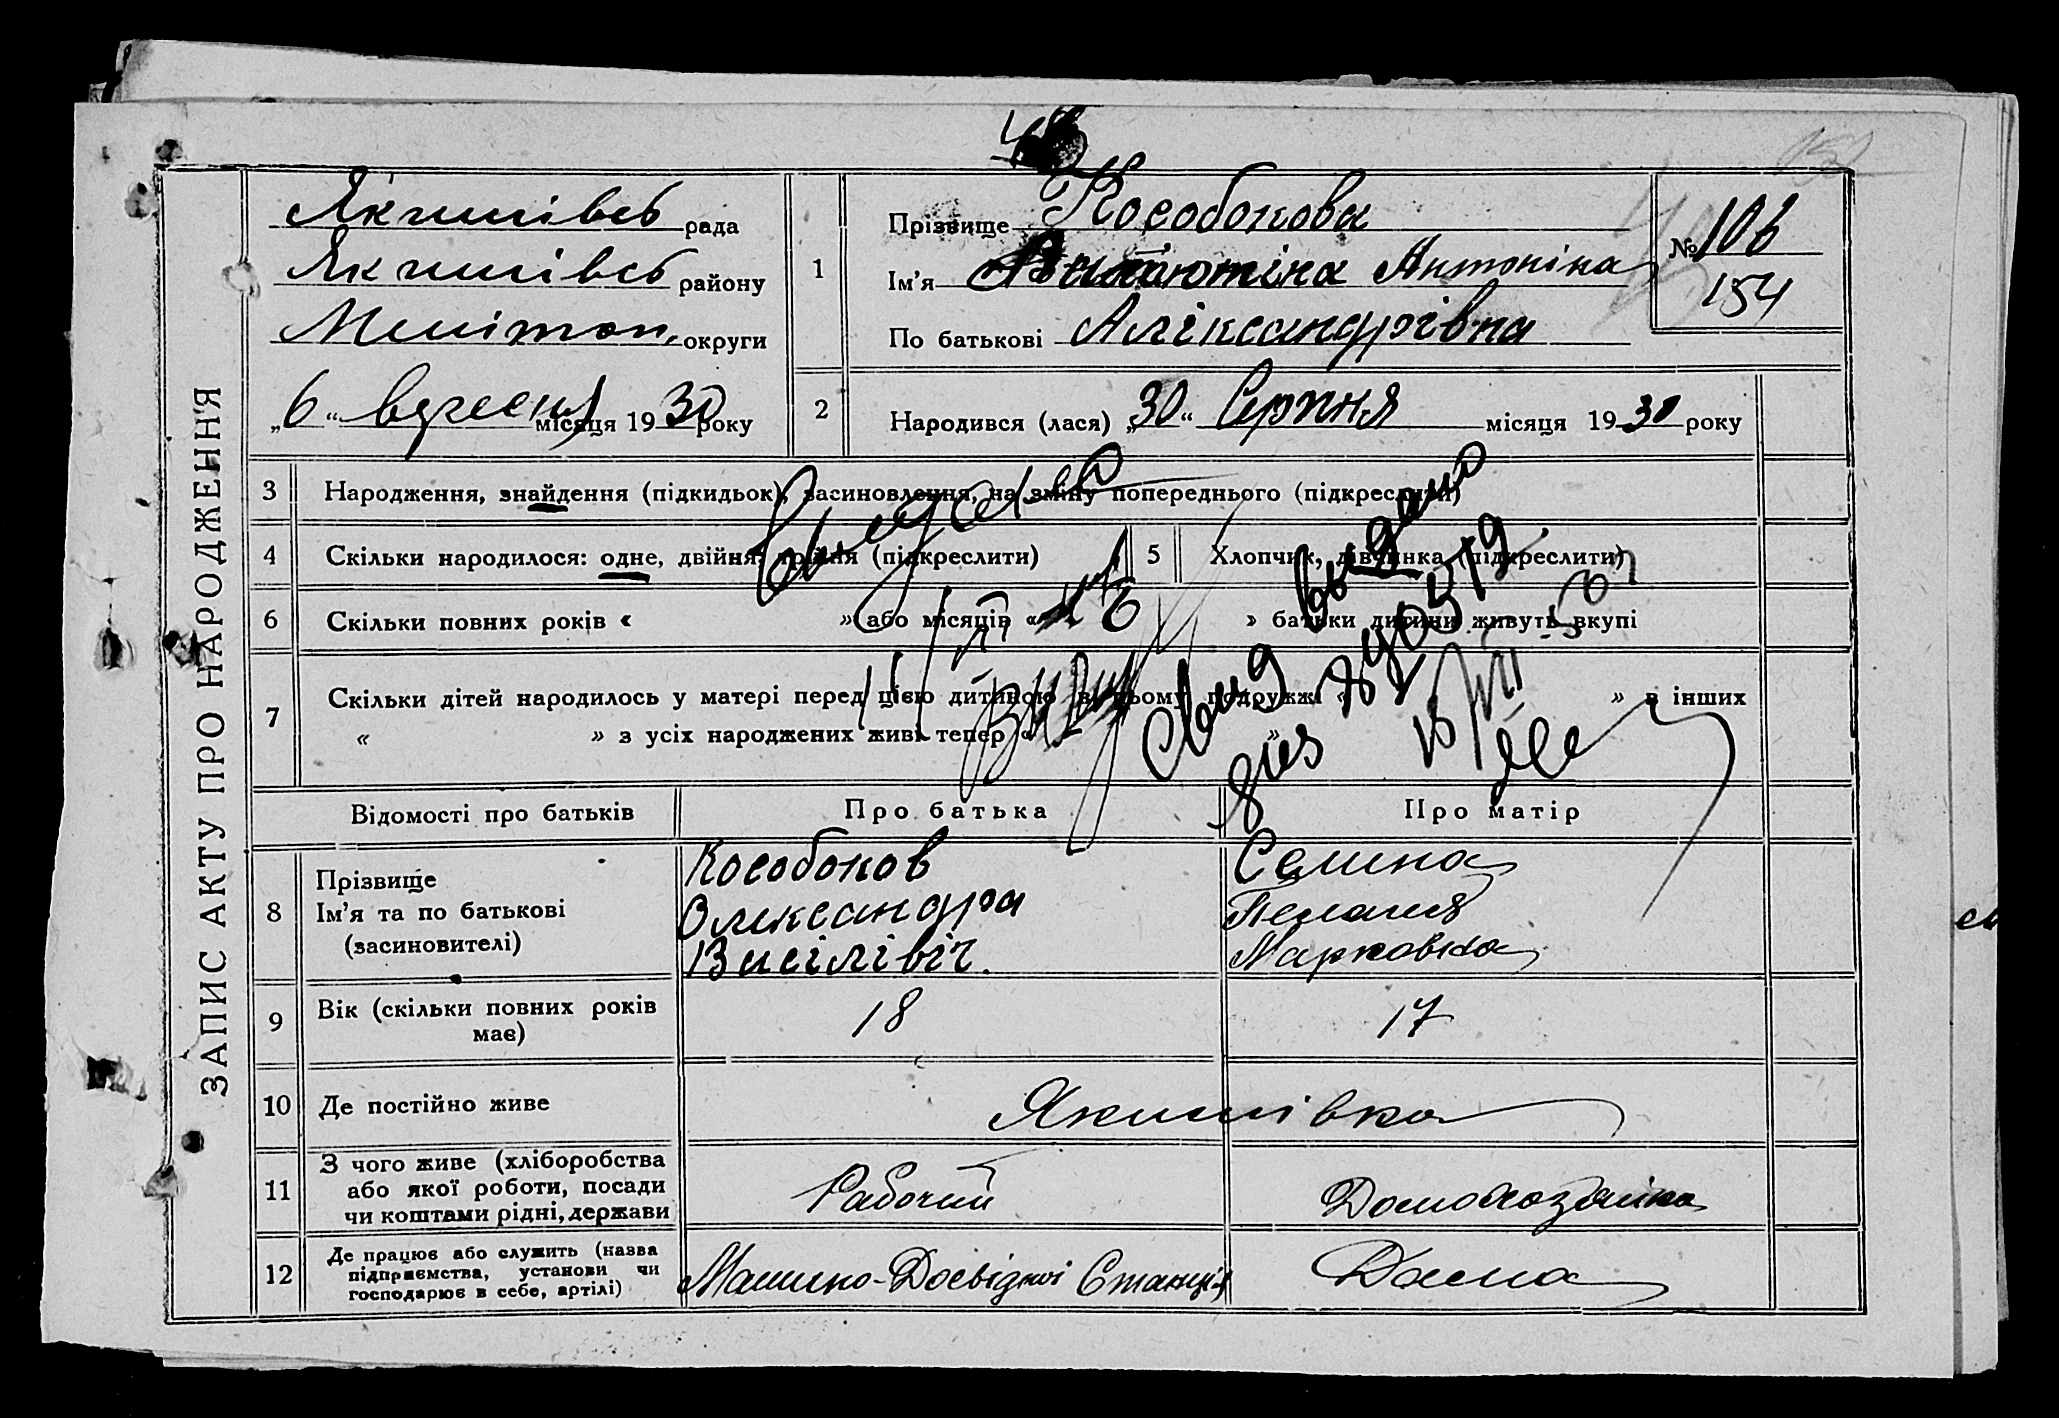 ЗАПИС АКТУ ПРО НАРОДЖЕННЯ
Якимівсь рада
Якимівсь району
Мелітоп. округи
„6“ вересня місяця 1930 року
1
Прізвище Кособокова
Ім'я Антоніна
По батькові Аліксандрівна
№ 106
154
2
Народився (лася) „30“ Серпня місяця 1930 року
3 Народження, знайдення (підкидьок), засиновлення, на зміну попереднього (підкреслити)
4 Скільки народилося: одне, двійня, трійня (підкреслити)
5 Хлопчик, дівчинка (підкреслити)
6 Скільки повних років « » або місяців « 6 » батьки дитини живуть вкупі
7 Скільки дітей народилось у матері перед цією дитиною в цьому подружжі « » в інших
« » з усіх народжених живі тепер « »
Свид выдано
Відомості про батьків
Про батька
Про матір
8
Прізвище
Ім'я та по батькові
(засиновителі)
Кособоков
Олександра
Висілівіч.
Семина
Пелагия
Марковна
9 Вік (скільки повних років має)
18
17
10 Де постійно живе
Якимівка
11
З чого живе (хліборобства
або якої роботи, посади
чи коштами рідні, держави
Рабочий
Домохозяйка
12
Де працює або служить (назва
підприємства, установи чи
господарює в себе, артілі)
Машино-Досвідної Станція
Дома